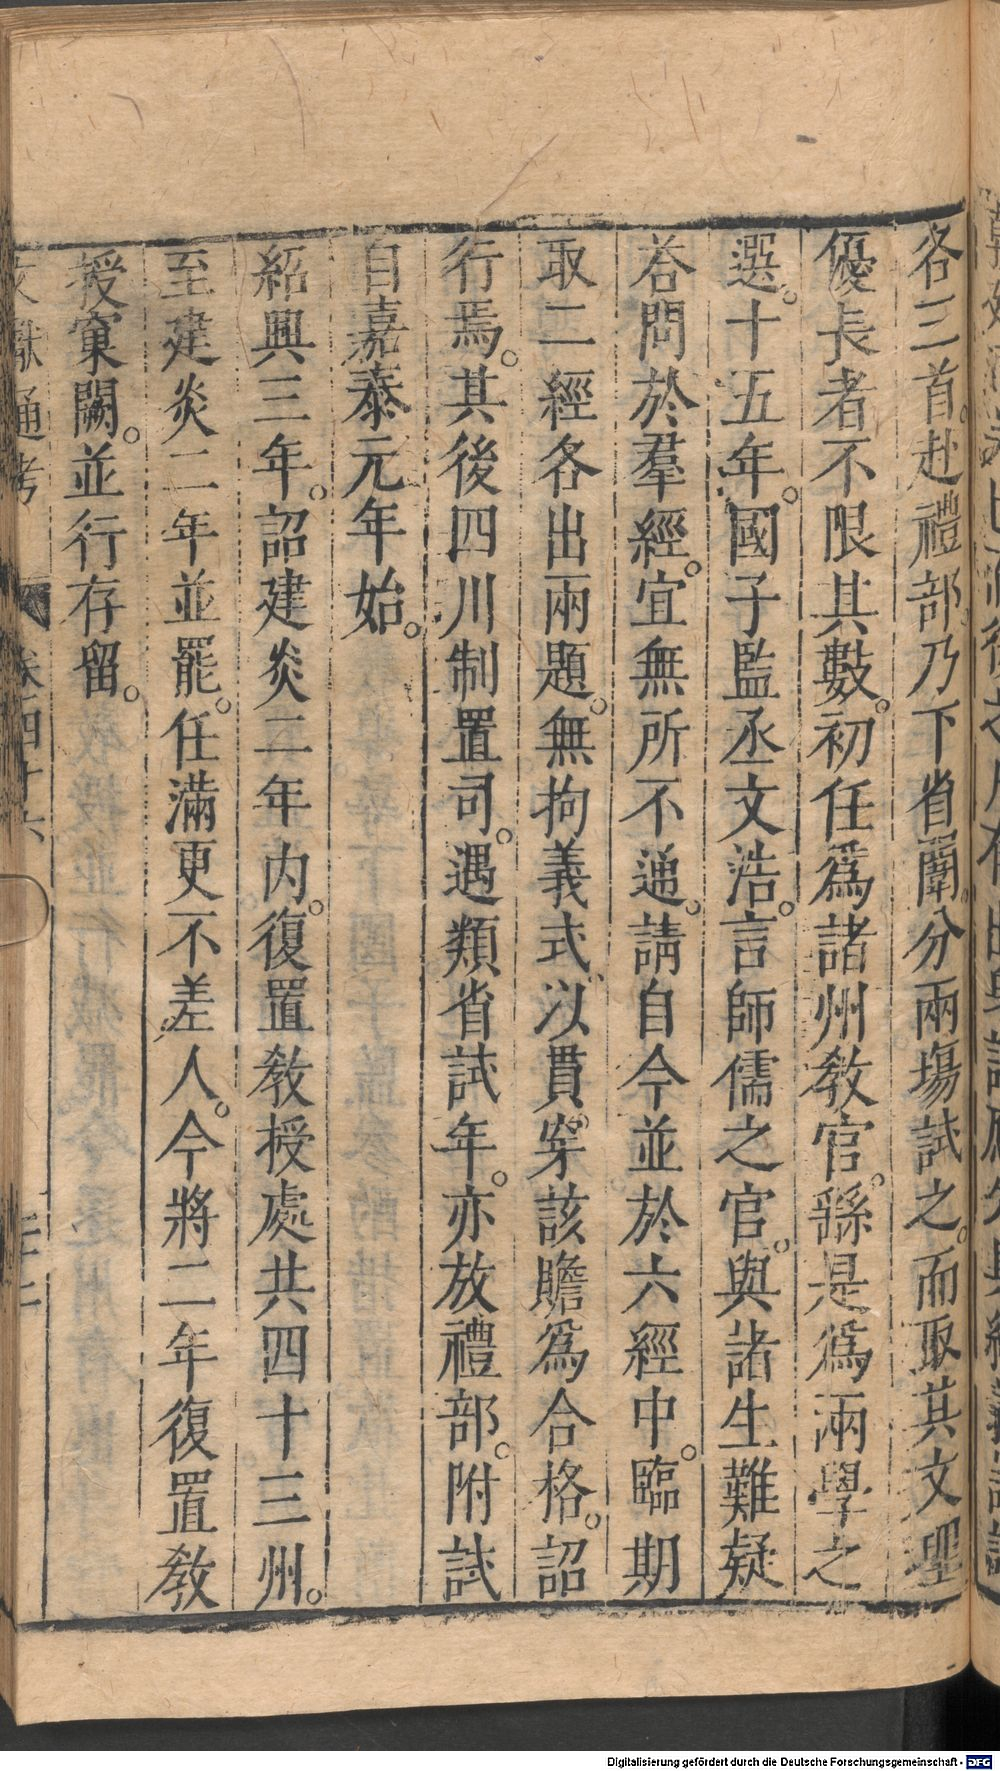 各三首。赴禮部。乃下省闈。分兩塲試之。而取其文理
優長者不限其數。初任爲諸州敎官。繇是爲兩學之
選。十五年。國子監丞文浩。言師儒之官。與諸生難疑
荅問於羣經。宜無所不通。請自今並於六經中。臨期
取二經各出兩題。無拘義式。以貫穿該贍爲合格。詔
行焉。其後四川制置司。遇類省試年。亦放禮部。附試
自嘉泰元年始。
紹興三年。詔建炎二年內。復置敎授處共四十三州。
至建炎二年並罷。任滿更不差人。今將二年復置敎
授窠闕。並行存留。
文獻通考 卷四十六 二十二
Digitalisierung gefördert durch die Deutsche Forschungsgemeinschaft - DFG